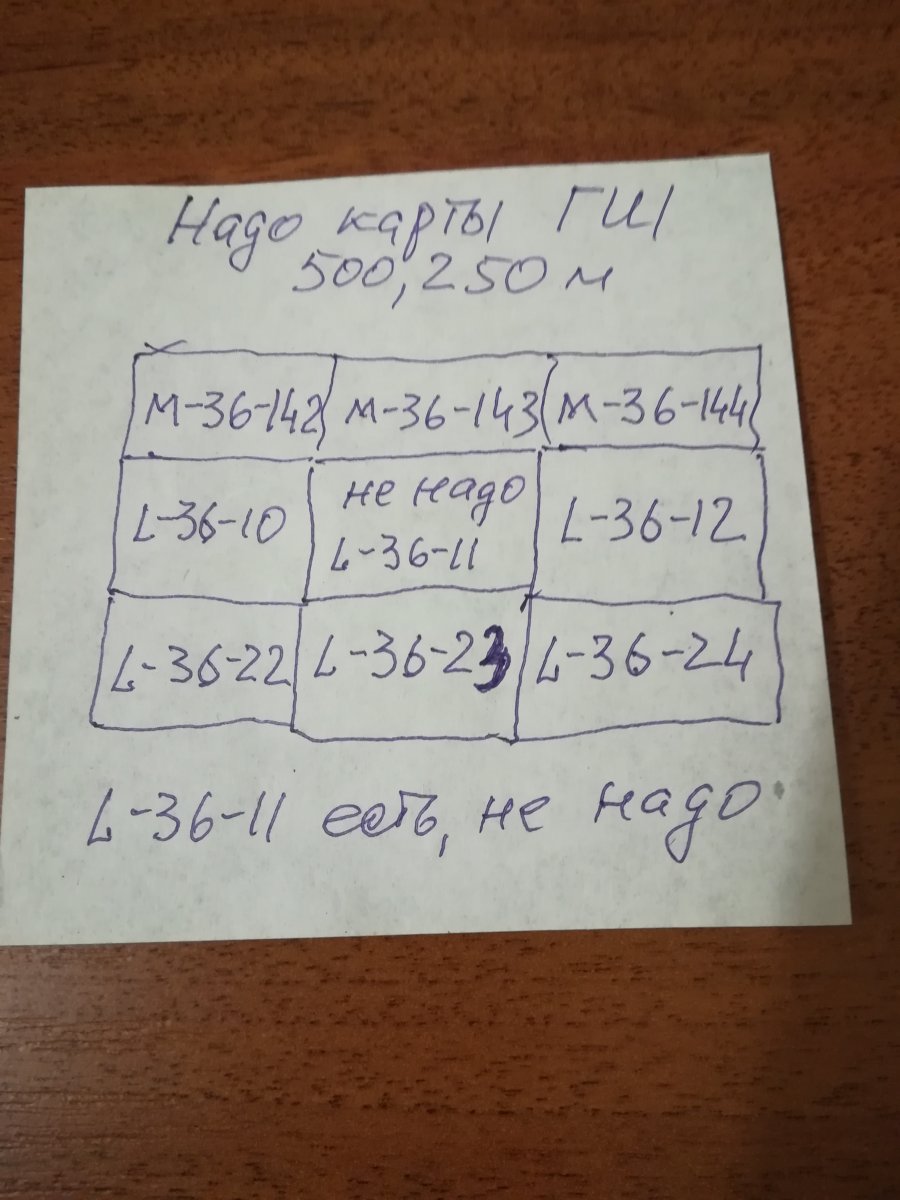 Надо карты ГШ
500, 250 м
М-36-142 М-36-143 М-36-144
L-36-10 не надо L-36-11 L-36-12
L-36-22 L-36-23 L-36-24
L-36-11 есть, не надо